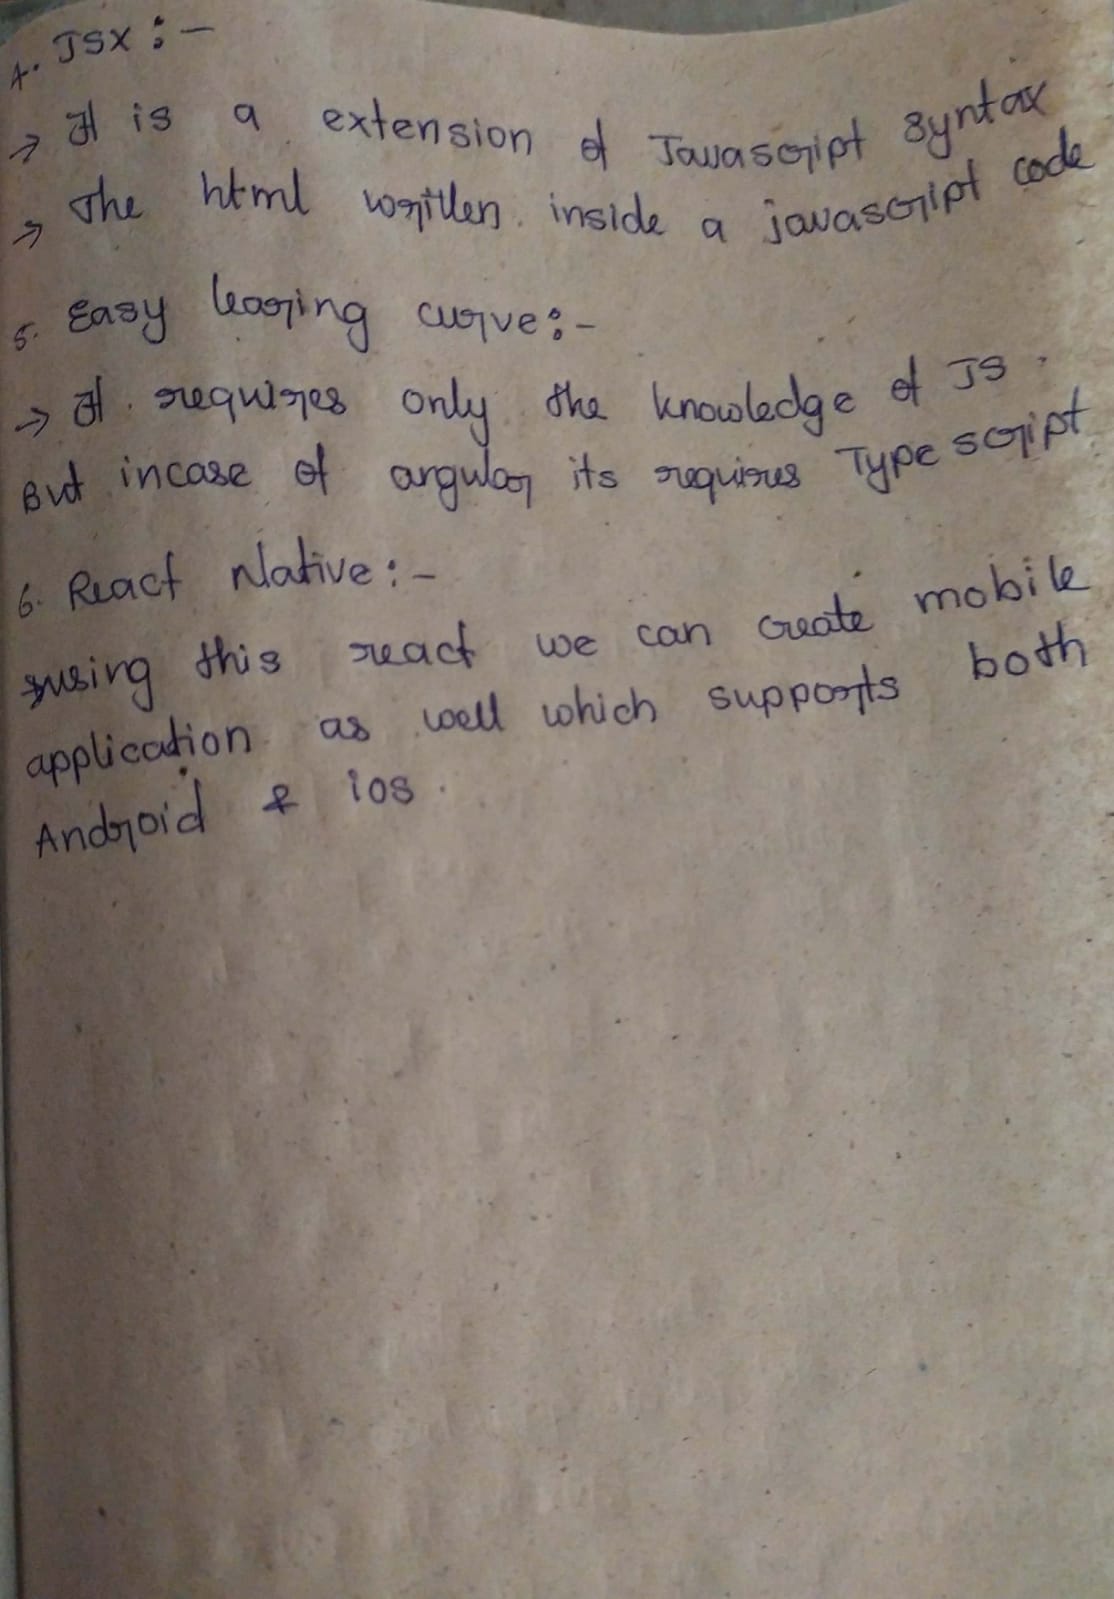 4. JSX :-
→ It is a extension of Javascript syntax
→ The html written inside a javascript code
5. Easy learing curve:-
→ It requires only the knowledge of JS.
But incase of angular its requires Type script
6. React Native:-
using this react we can create mobile
application as well which supports both
Android & ios.